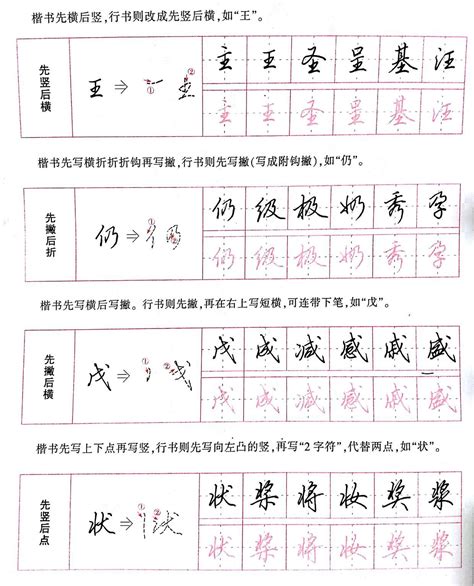 楷书先横后竖,行书则改成先竖后横,如“王”。
先竖后横
王 ⇒ ① ②
主 王 圣 呈 基 汪
主 王 圣 呈 基 汪
楷书先写横折折折钩再写撇,行书则先写撇(写成附钩撇),如“仍”。
先撇后折
仍 ⇒ ① ②
仍 级 极 奶 秀 孕
仍 级 极 奶 秀 孕
楷书先写横后写撇。行书则先撇,再在右上写短横,可连带下笔,如“戊”。
先撇后横
戊 ⇒ ① ②
戊 成 减 感 戚 盛
戊 成 减 感 戚 盛
楷书先写上下点再写竖,行书则先写向左凸的竖,再写“2字符”,代替两点,如“状”。
先竖后点
状 ⇒ ① ②
状 桨 将 妆 奖 浆
状 桨 将 妆 奖 浆